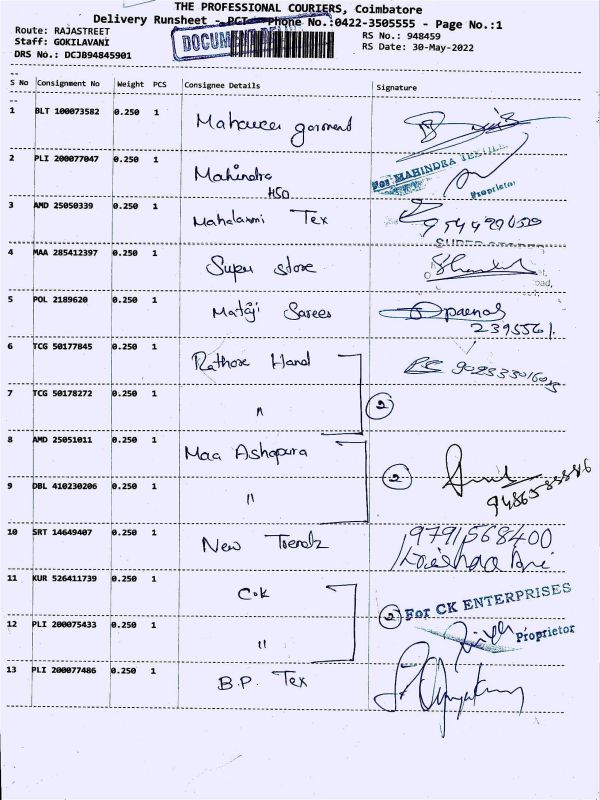 THE PROFESSIONAL COURIERS, Coimbatore
Delivery Runsheet - PCT - Phone No.:0422-3505555 - Page No.:1
Route: RAJASTREET
RS No.: 948459
Staff: GOKILAVANI
RS Date: 30-May-2022
DRS No.: DCJB94845901
DOCUMENT
S No Consignment No Weight PCS Consignee Details Signature
1 BLT 100073582 0.250 1 Mahaveer garment
2 PLI 200077047 0.250 1 Mahindra For MAHINDRA TEXTILE
H50 Proprietor
3 AMD 25050339 0.250 1 Mahalaxmi Tex
4 MAA 285412397 0.250 1 Super store
5 POL 2189620 0.250 1 Mataji Sarees
2395561
6 TCG 50177845 0.250 1 Rathore Hand
7 TCG 50178272 0.250 1 " 2
8 AMD 25051011 0.250 1 Maa Ashapura
2
9 DBL 410230206 0.250 1 "
10 SRT 14649407 0.250 1 New Trendz 9791568400
11 KUR 526411739 0.250 1 C.K
2 For CK ENTERPRISES
12 PLI 200075433 0.250 1 " Proprietor
13 PLI 200077486 0.250 1 B.P. Tex